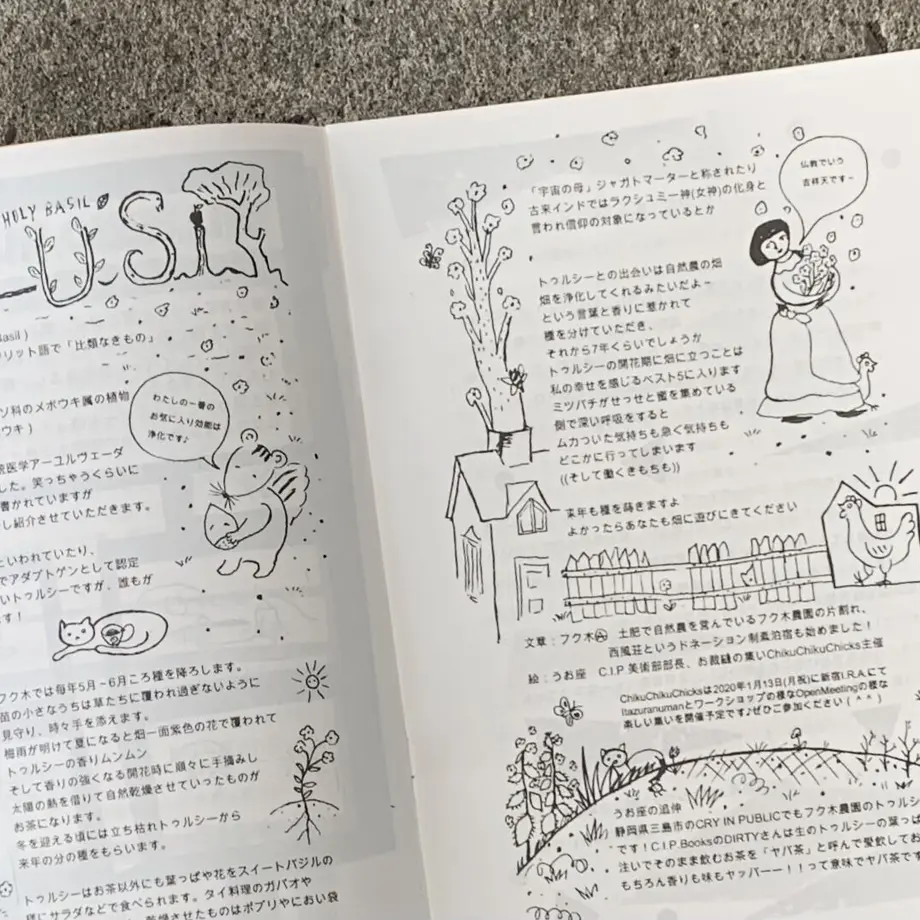 HOLY BASIL
USi
リット語で「比類なきもの」
ソ科のメボウキ属の植物
ウキ )
医学アーユルヴェーダ
した。笑っちゃうくらいに
書かれていますが
し紹介させていただきます。
わたしの一番の
お気に入り効能は
浄化です♪
といわれていたり、
でアダプトゲンとして認定
いトゥルシーですが、誰もが
ます！
フク木では毎年5月~6月ころ種を降ろします。
苗の小さなうちは草たちに覆われ過ぎないように
見守り、時々手を添えます。
梅雨が明けて夏になると畑一面紫色の花で覆われて
トゥルシーの香りムンムン
そして香りの強くなる開花時に順々に手摘みし
太陽の熱を借りて自然乾燥させていったものが
お茶になります。
冬を迎える頃には立ち枯れトゥルシーから
来年の分の種をもらいます。
トゥルシーはお茶以外にも葉っぱや花をスイートバジルの
様にサラダなどで食べられます。タイ料理のガパオや
乾燥させたものはポプリやにおい袋
「宇宙の母」ジャガトマーターと称されたり
古来インドではラクシュミー神(女神)の化身と
言われ信仰の対象になっているとか
仏教でいう
吉祥天です~
トゥルシーとの出会いは自然農の畑
畑を浄化してくれるみたいだよ~
という言葉と香りに惹かれて
種を分けていただき、
それから7年くらいでしょうか
トゥルシーの開花期に畑に立つことは
私の幸せを感じるベスト5に入ります
ミツバチがせっせと蜜を集めている
側で深い呼吸をすると
ムカついた気持ちも急ぐ気持ちも
どこかに行ってしまいます
((そして働くきもちも))
来年も種を蒔きますよ
よかったらあなたも畑に遊びにきてください
文章：フク木 土肥で自然農を営んでいるフク木農園の片割れ、
西風荘というドネーション制素泊宿も始めました！
絵：うお座 C.I.P.美術部部長、お裁縫の集いChikuChikuChicks主催
ChikuChikuChicksは2020年1月13日(月祝)に新宿I.R.A.にて
Itazuranumanとワークショップの様なOpenMeetingの様な
楽しい集いを開催予定です♪ぜひご参加ください ( ＾＾ )
うお座の追伸
静岡県三島市のCRY IN PUBLICでもフク木農園のトゥルシ
です！C.I.P.BooksのDIRTYさんは生のトゥルシーの葉っぱ
注いでそのまま飲むお茶を「ヤバ茶」と呼んで愛飲してお
もちろん香りも味もヤッバーー！！って意味でヤバ茶です